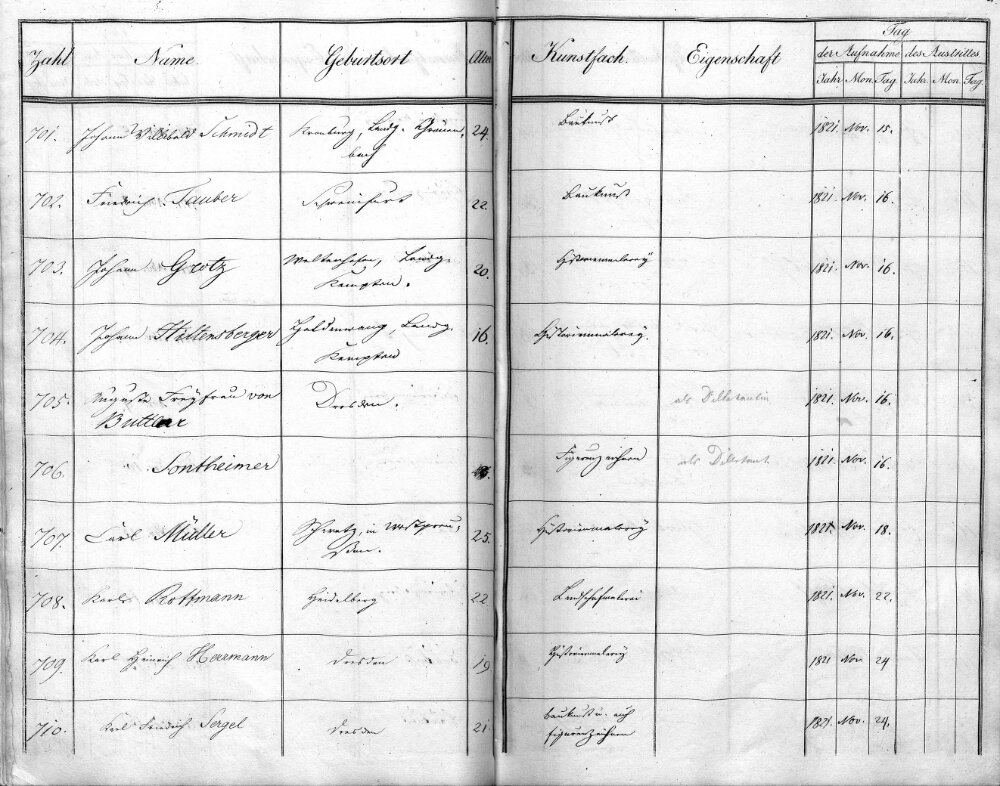 Tag
Zahl Name. Geburtsort Alter Kunstfach. Eigenschaft der Aufnahme des Austrittes
Jahr Mon. Tag. Jahr. Mon. Tag.
701. Johann Willibald Schmidt Kronburg, Landg. Grönen- 24. Baukunst 1821. Nov. 15.
bach
702. Friedrich Tauber Schweinfurt 22. Baukunst 1821. Nov. 16.
703. Johann Grotz Landg. 20. Historienmalerey 1821. Nov. 16.
Kempten.
704. Johann Hiltensberger Haldenwang, Landg. 16. Historienmalerey. 1821. Nov. 16.
Kempten
705. Auguste Freyfrau von Dresden. als Dilletantin 1821. Nov. 16.
Buttlar
706. Sontheimer Figurenzeichnen als Dilletant 1821. Nov. 16.
707. Carl Müller Schwetz, in Westpreu- 25. Historienmalerey 1821. Nov. 18.
ßen.
708. Karl Rottmann Heidelberg 22 Landschaftmalerei 1821. Nov. 22.
709. Karl Heinrich Hermann Dresden 19 Historienmalerey 1821 Nov. 24
710. Karl Friedrich Sergel Dresden 21. Baukunst u. auch 1821. Nov. 24.
Figurenzeichnen